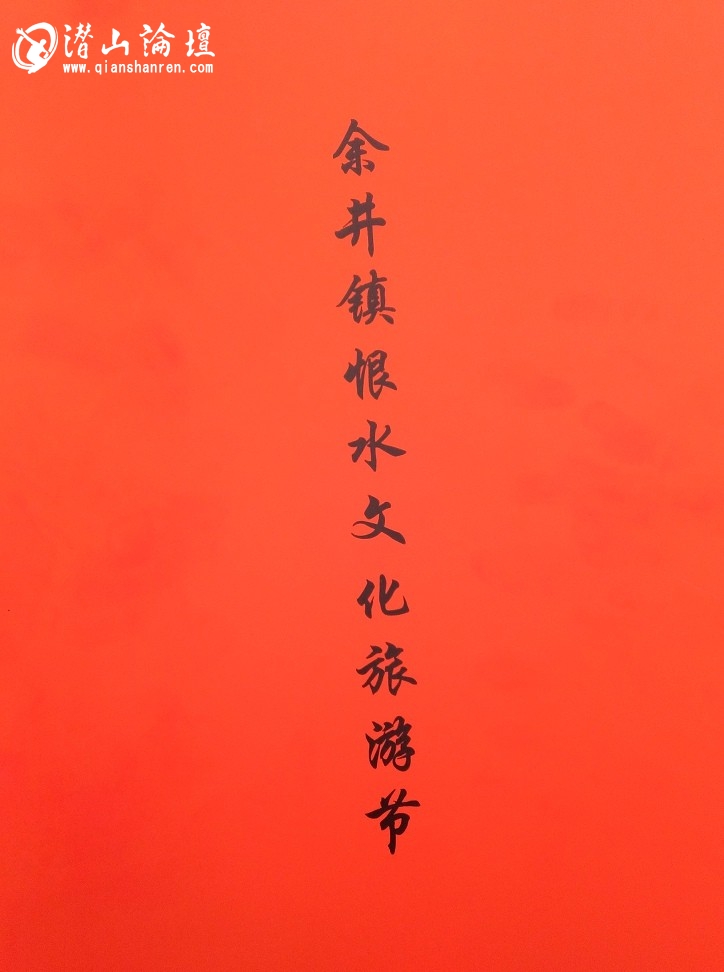 潜山論壇
www.qianshanren.com
余井镇恨水文化旅游节